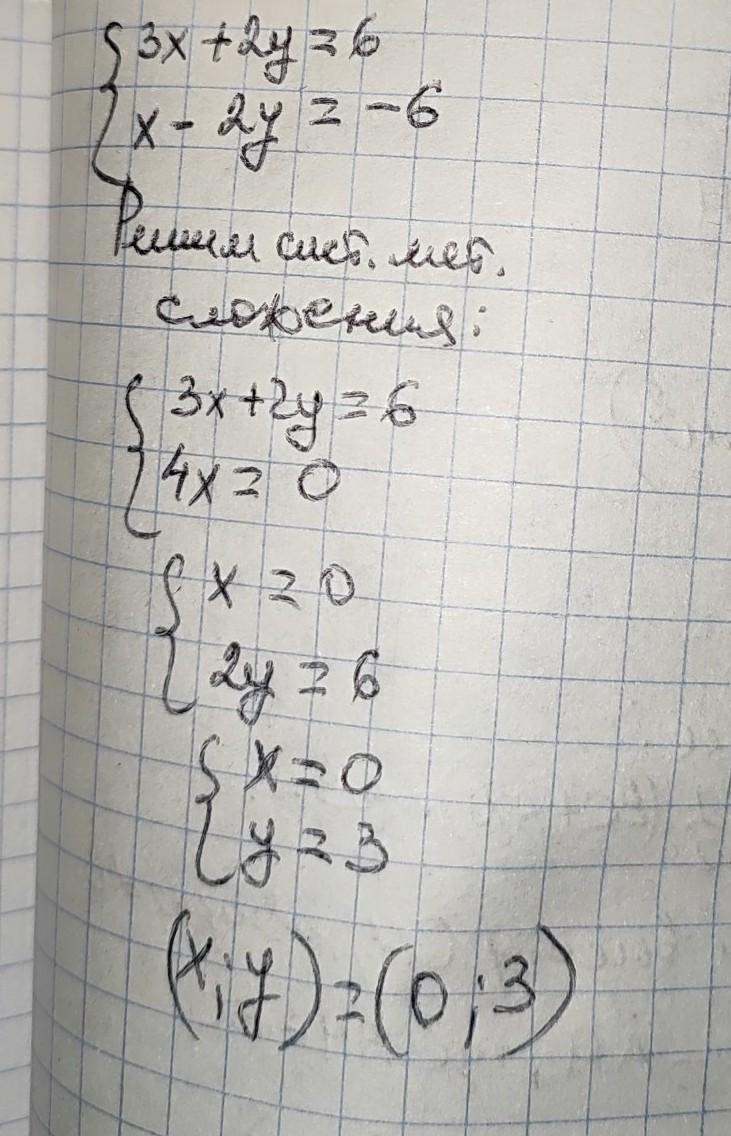 3x + 2y = 6
x - 2y = -6
Решим сист. мет.
сложения:
3x + 2y = 6
4x = 0
x = 0
2y = 6
x = 0
y = 3
(x; y) = (0; 3)